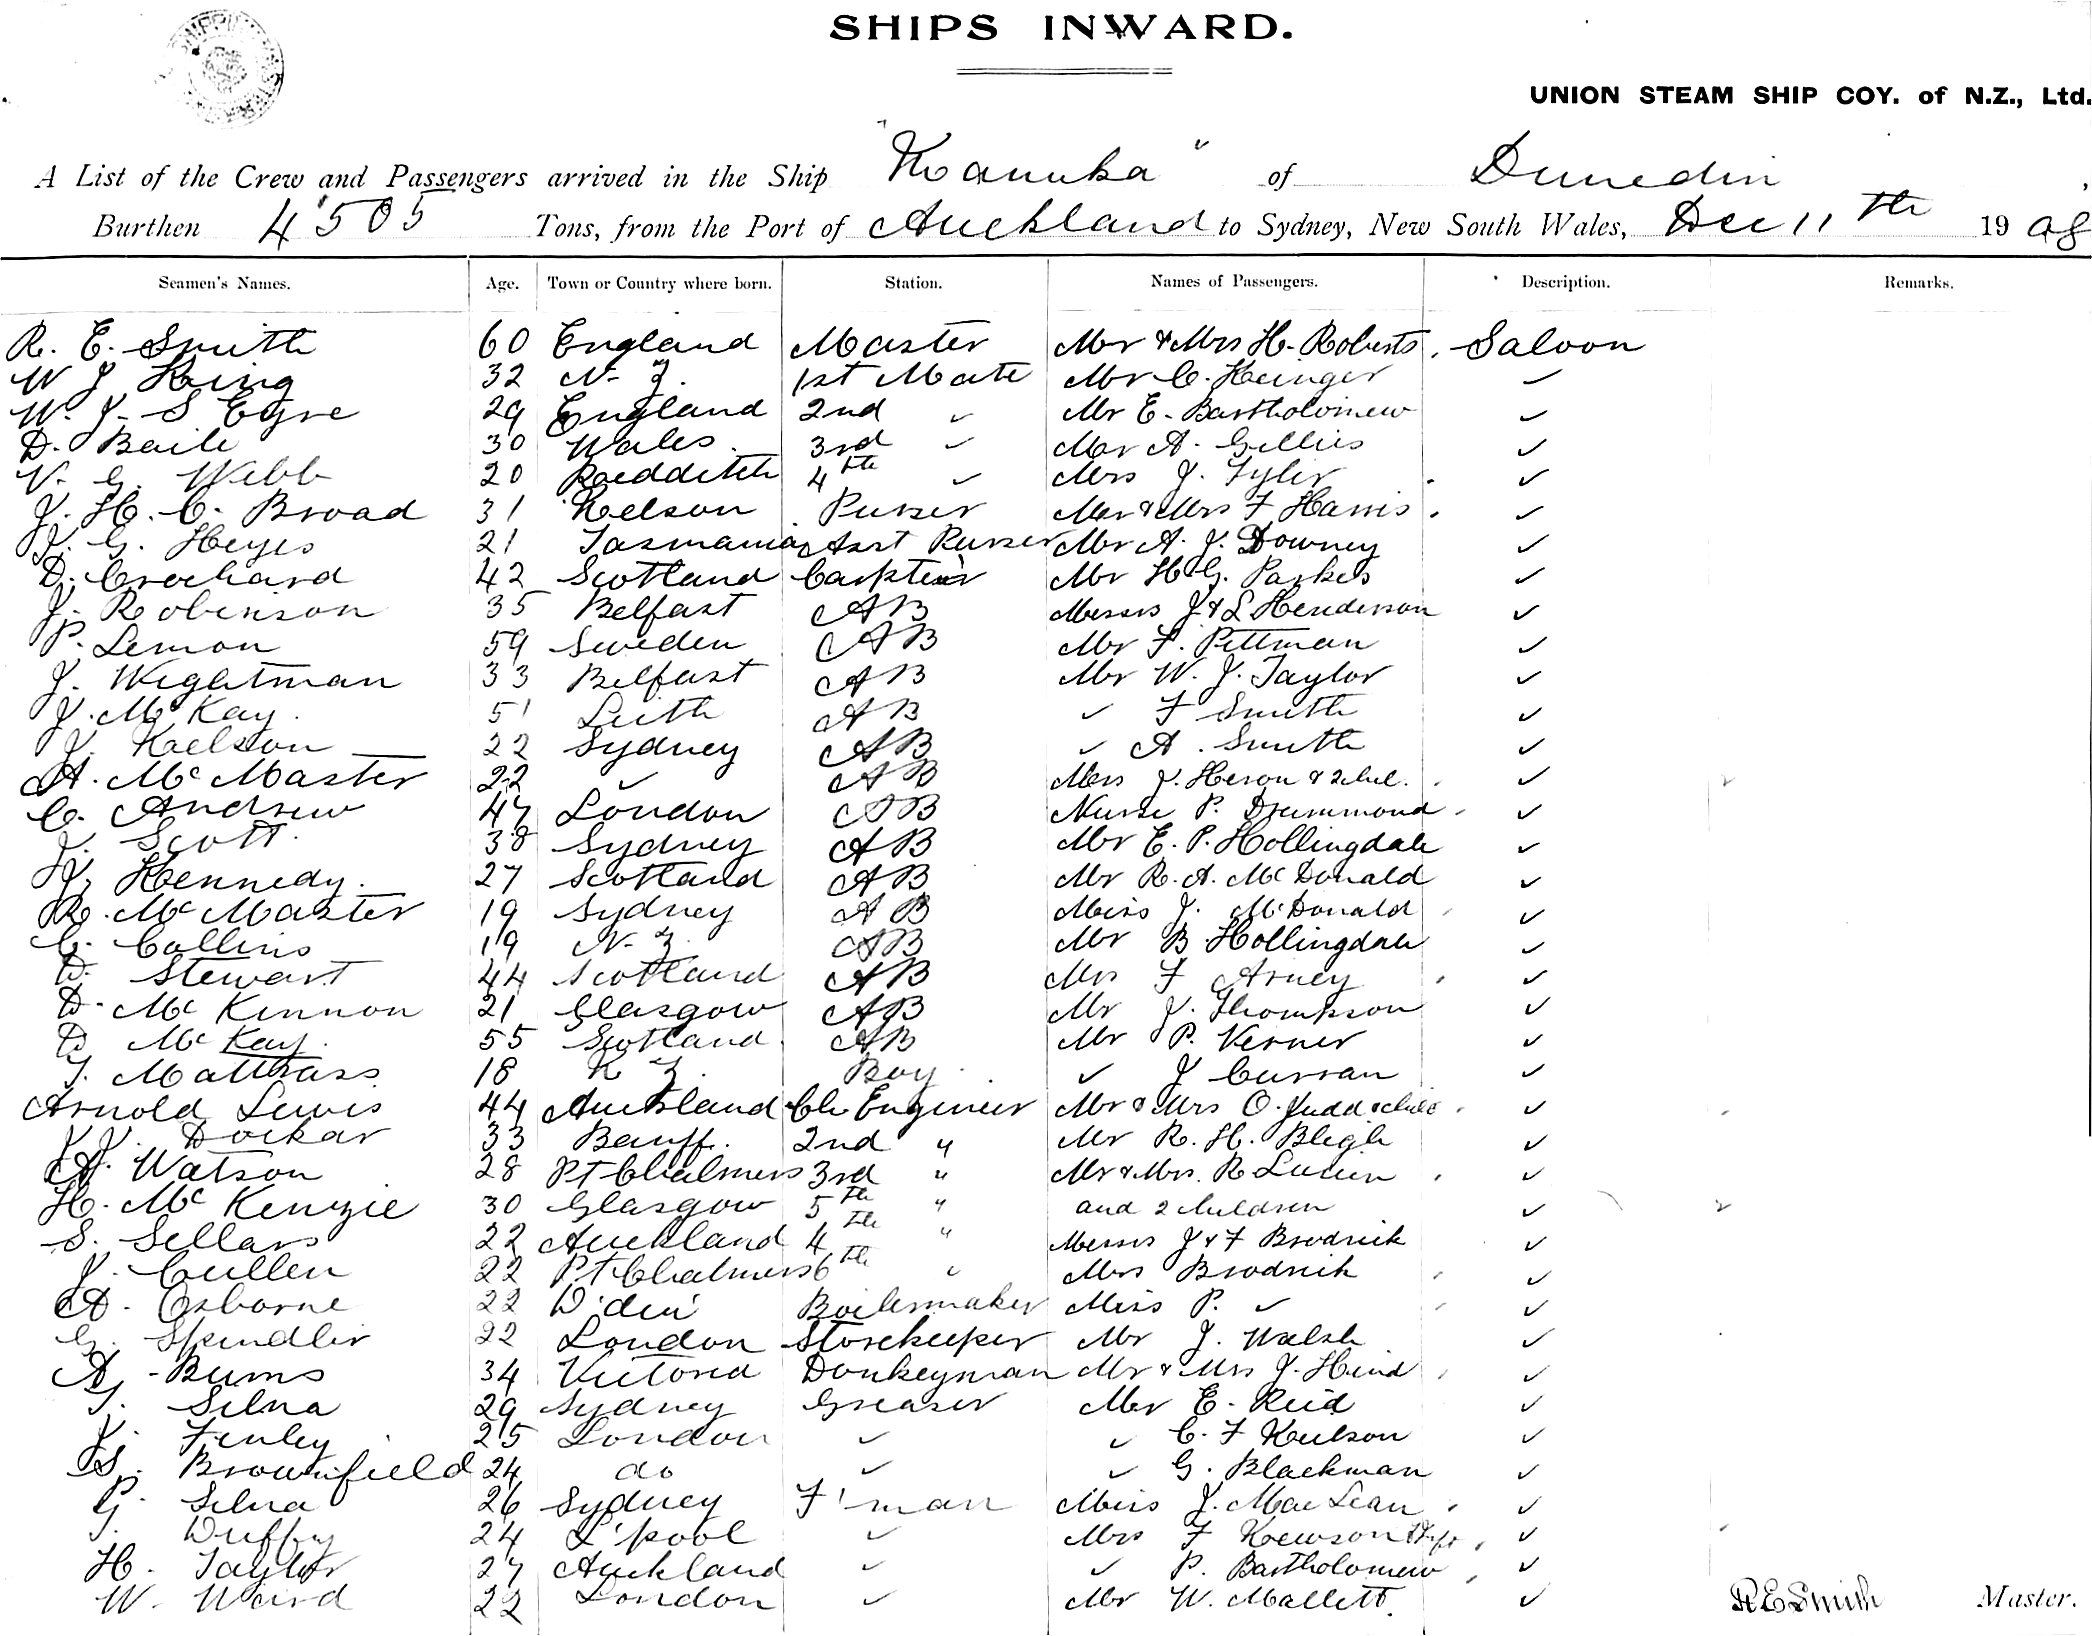 SHIPS INWARD.
UNION STEAM SHIP COY. of N.Z., Ltd.
A List of the Crew and Passengers arrived in the Ship "Manuka" of Dunedin
Burthen 4505 Tons, from the Port of Auckland to Sydney, New South Wales, Dec 11th 1908
Seamen's Names. Age. Town or Country where born. Station. Names of Passengers. Description. Remarks.
R. E. Smith 60 England Master Mr & Mrs H. Roberts. Saloon
W J King 32 N. Z. 1st Mate Mr C. Heinger ✓
W. J. S Eyre 29 England 2nd ✓ Mr E. Bartholomew ✓
D. Baile 30 Wales 3rd ✓ Mr A. Gillies ✓
V. G. Webb 20 Redditch 4th ✓ Mrs J. Tyler ✓
J. H. C. Broad 31 Nelson Purser Mr & Mrs F Harris. ✓
G. Heyes 21 Tasmania Asst Purser Mr A. J. Downey ✓
D. Crochard 42 Scotland Carpter Mr H G. Parkes ✓
J. Robinson 35 Belfast AB Messrs J & L Henderson ✓
P. Lemon 59 Sweden AB Mr F. Pittman ✓
J. Wightman 33 Belfast AB Mr W. J. Taylor ✓
J. McKay. 51 Leith AB ✓ F Smith ✓
J. Nelson 22 Sydney AB ✓ A. Smith ✓
A. McMaster 22 ✓ AB Mrs J. Heron & 2 chil. ✓
C. Andrew 47 London AB Nurse P. Drummond ✓
J. Scott. 38 Sydney AB Mr E. P. Hollingdale ✓
J. Kennedy. 27 Scotland AB Mr R. A. McDonald ✓
R. McMaster 19 Sydney AB Miss J. McDonald ✓
C. Collins 19 N. Z. AB Mr B Hollingdale ✓
D. Stewart 44 Scotland AB Mrs F Arney ✓
D. McKinnon 21 Glasgow AB Mr J. Thompson ✓
D McKay. 55 Scotland AB Mr P. Verner ✓
T. Matthass 18 N Z. Boy ✓ J Curran ✓
Arnold Lewis 44 Auckland Ch Engineer Mr & Mrs O. Judd & child ✓
J. Dockar 33 Banff. 2nd " Mr R. H. Bligh ✓
A. Watson 28 Pt Chalmers 3rd " Mr & Mrs. R Lucien ✓
H. McKenzie 30 Glasgow 5th " and 2 children ✓
S. Sellars 22 Auckland 4th " Messrs J & F Brodrick ✓
J. Cullen 22 Pt Chalmers 6th ✓ Mrs Brodrick ✓
A. Osborne 22 D'din Boilermaker Miss P. ✓ ✓
G. Spindler 22 London Storekeeper Mr J. Walsh ✓
A. Burns 34 Victoria Donkeyman Mr & Mrs J. Hind ✓
T. Silva 29 Sydney Greaser Mr E. Reid ✓
J. Finley 25 London ✓ ✓ C. F Neilson ✓
S. Brownfield 24 do ✓ ✓ G. Blackman ✓
G. Silva 26 Sydney F'man Miss J. MacLean ✓
T. Duffy 24 L'pool ✓ Mrs F Hewson ✓
H. Taylor 27 Auckland ✓ ✓ P. Bartholomew ✓
W. Ward 22 London ✓ Mr W. Mallett. ✓
R E Smith Master.